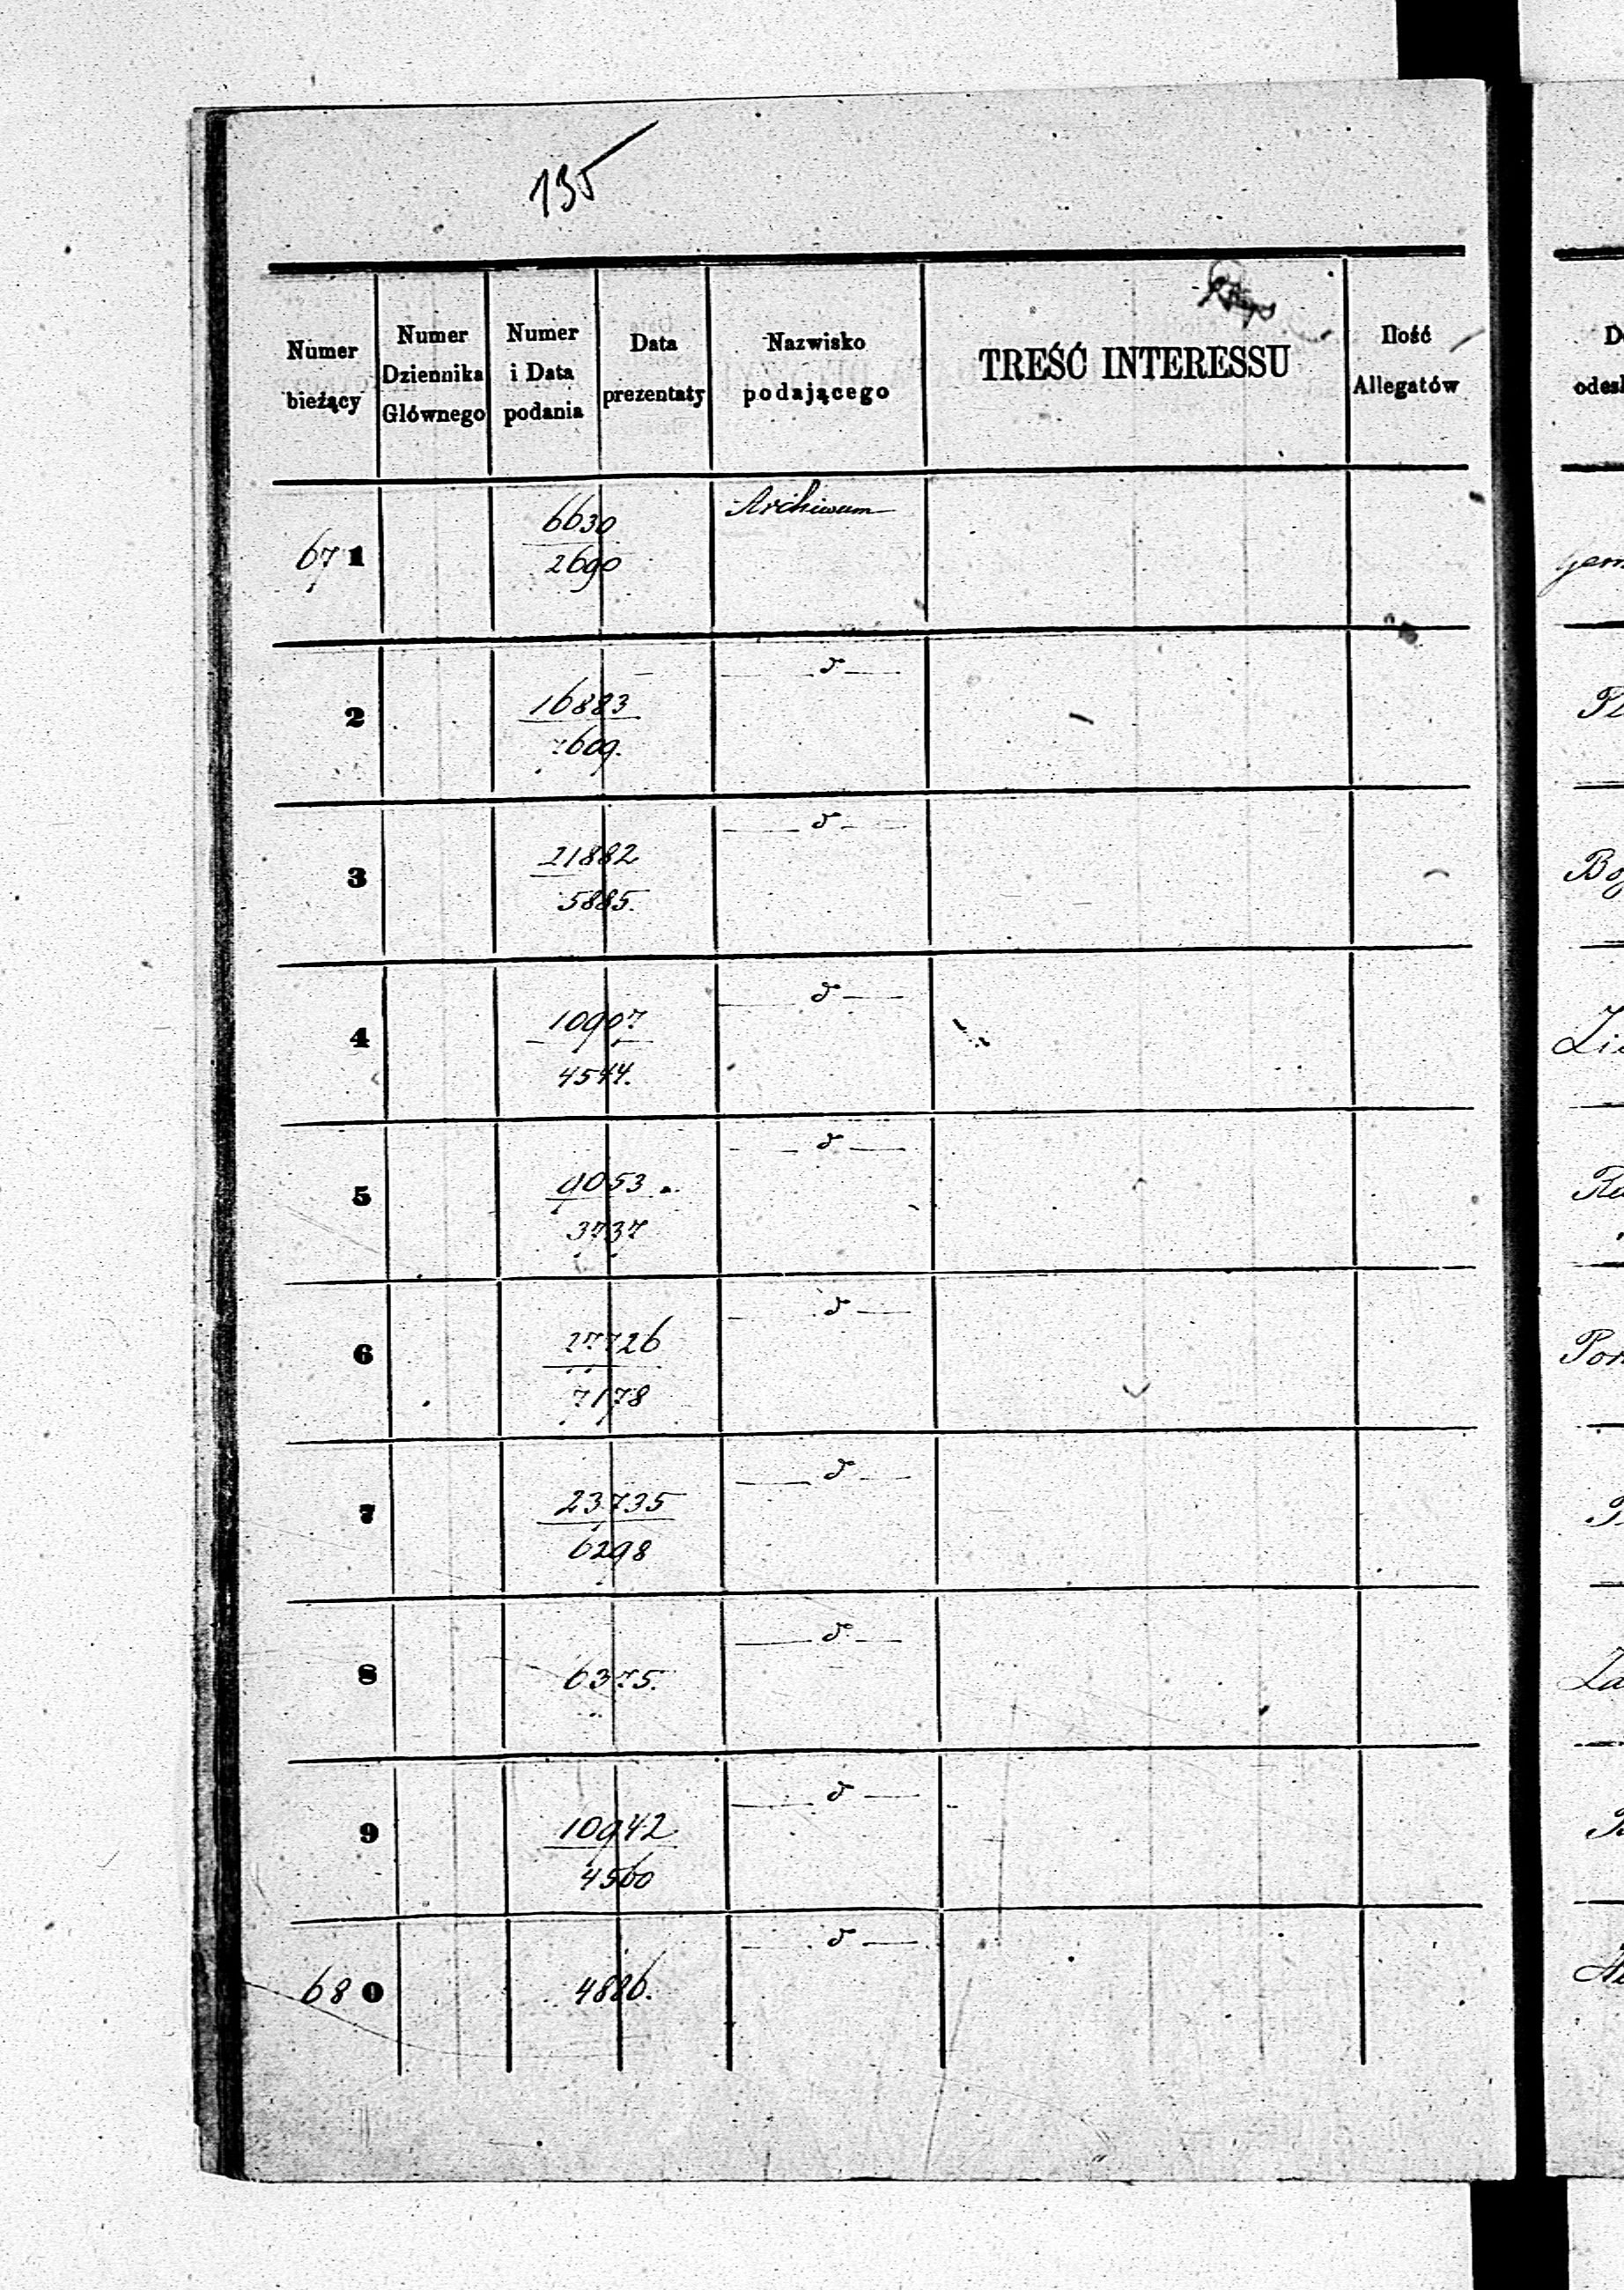 135
Numer bieżący
Numer Dziennika Głównego
Numer i Data podania
Data prezentaty
Nazwisko podającego
TREŚĆ INTERESSU
Ilość Allegatów
671 6630 Archiwum
2690
2 16883 — d —
7609.
3 21882 — d —
5885.
4 10907 — d —
4544.
5 9053 — d —
3737
6 27726 — d —
7178
7 23735 — d —
6298
8 6375. — d —
9 10942 — d —
4560
680 4886. — d —